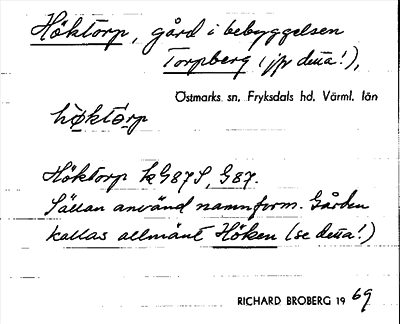 Höktorp, gård i bebyggelsen
Torpberg (jfr detta!),
Östmarks sn, Fryksdals hd, Värml. län
hø̀którp
Höktorp k G87S, G87.
Sällan använd namnform. Gården
kallas allmänt Höken (se detta!)
RICHARD BROBERG 1969